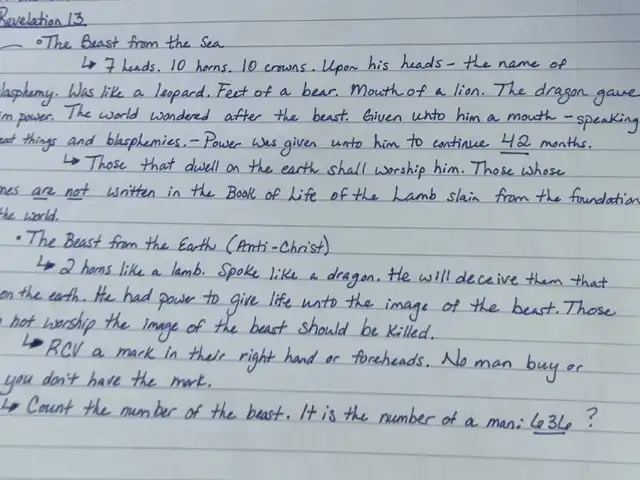 Revelation 13
• The Beast from the Sea
↳ 7 heads. 10 horns. 10 crowns. Upon his heads - the name of
lasphemy. Was like a leopard. Feet of a bear. Mouth of a lion. The dragon gave
im power. The world wondered after the beast. Given unto him a mouth - speaking
eat things and blasphemies. - Power was given unto him to continue 42 months.
↳ Those that dwell on the earth shall worship him. Those whose
mes are not written in the Book of Life of the Lamb slain from the foundation
the world.
• The Beast from the Earth (Anti-Christ)
↳ 2 horns like a lamb. Spoke like a dragon. He will deceive them that
on the earth. He had power to give life unto the image of the beast. Those
not worship the image of the beast should be killed.
↳ RCV a mark in their right hand or foreheads. No man buy or
you don't have the mark.
↳ Count the number of the beast. It is the number of a man: 636 ?